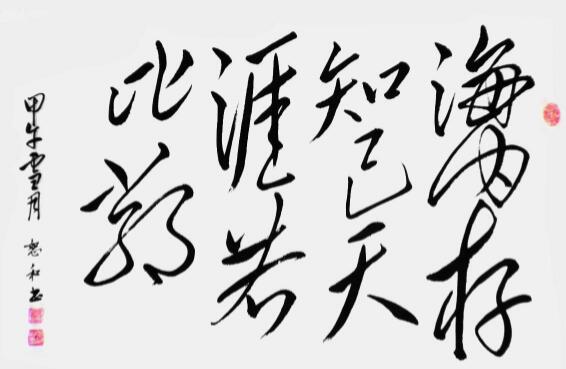 海内存
知己天
涯若
比鄰
甲午雪月 和书